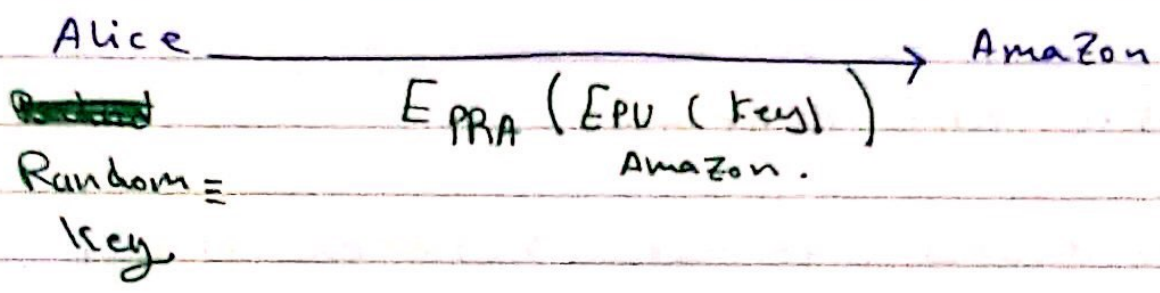 Alice → Amazon
E PRA ( EPU ( key) )
Amazon.
Random =
key